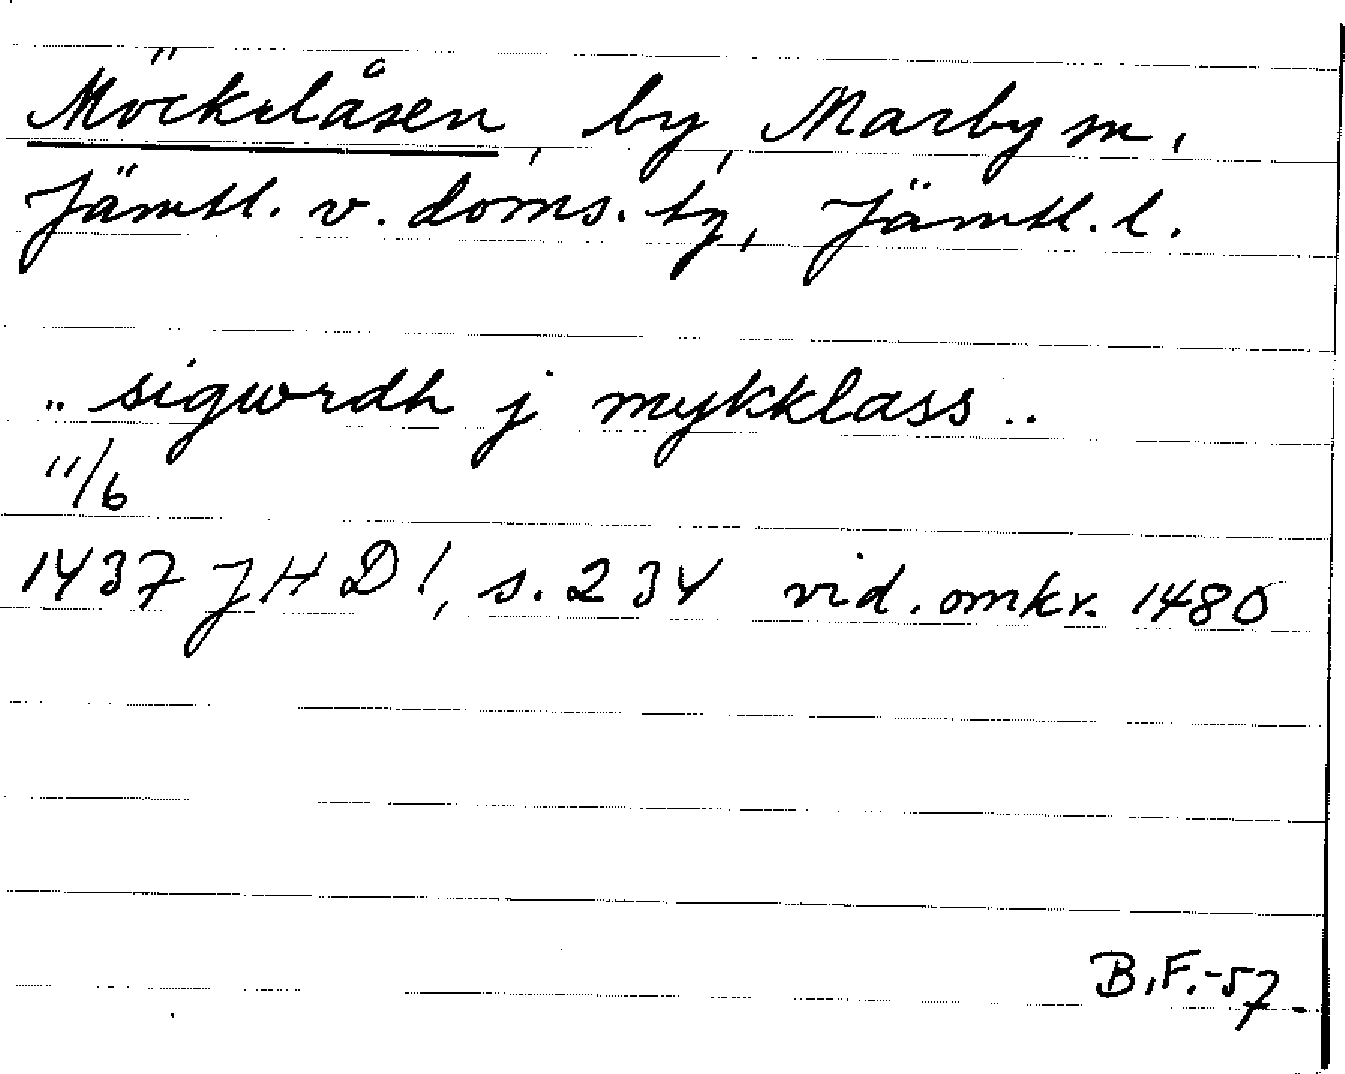 Möckelåsen, by, Marby sn,
Jämtl. v. doms. tg, Jämtl. l.
.. sigwrdh j mykklass ..
11/6
1437 JHD 1, s. 234 vid. omkr. 1480
B.F.-57.